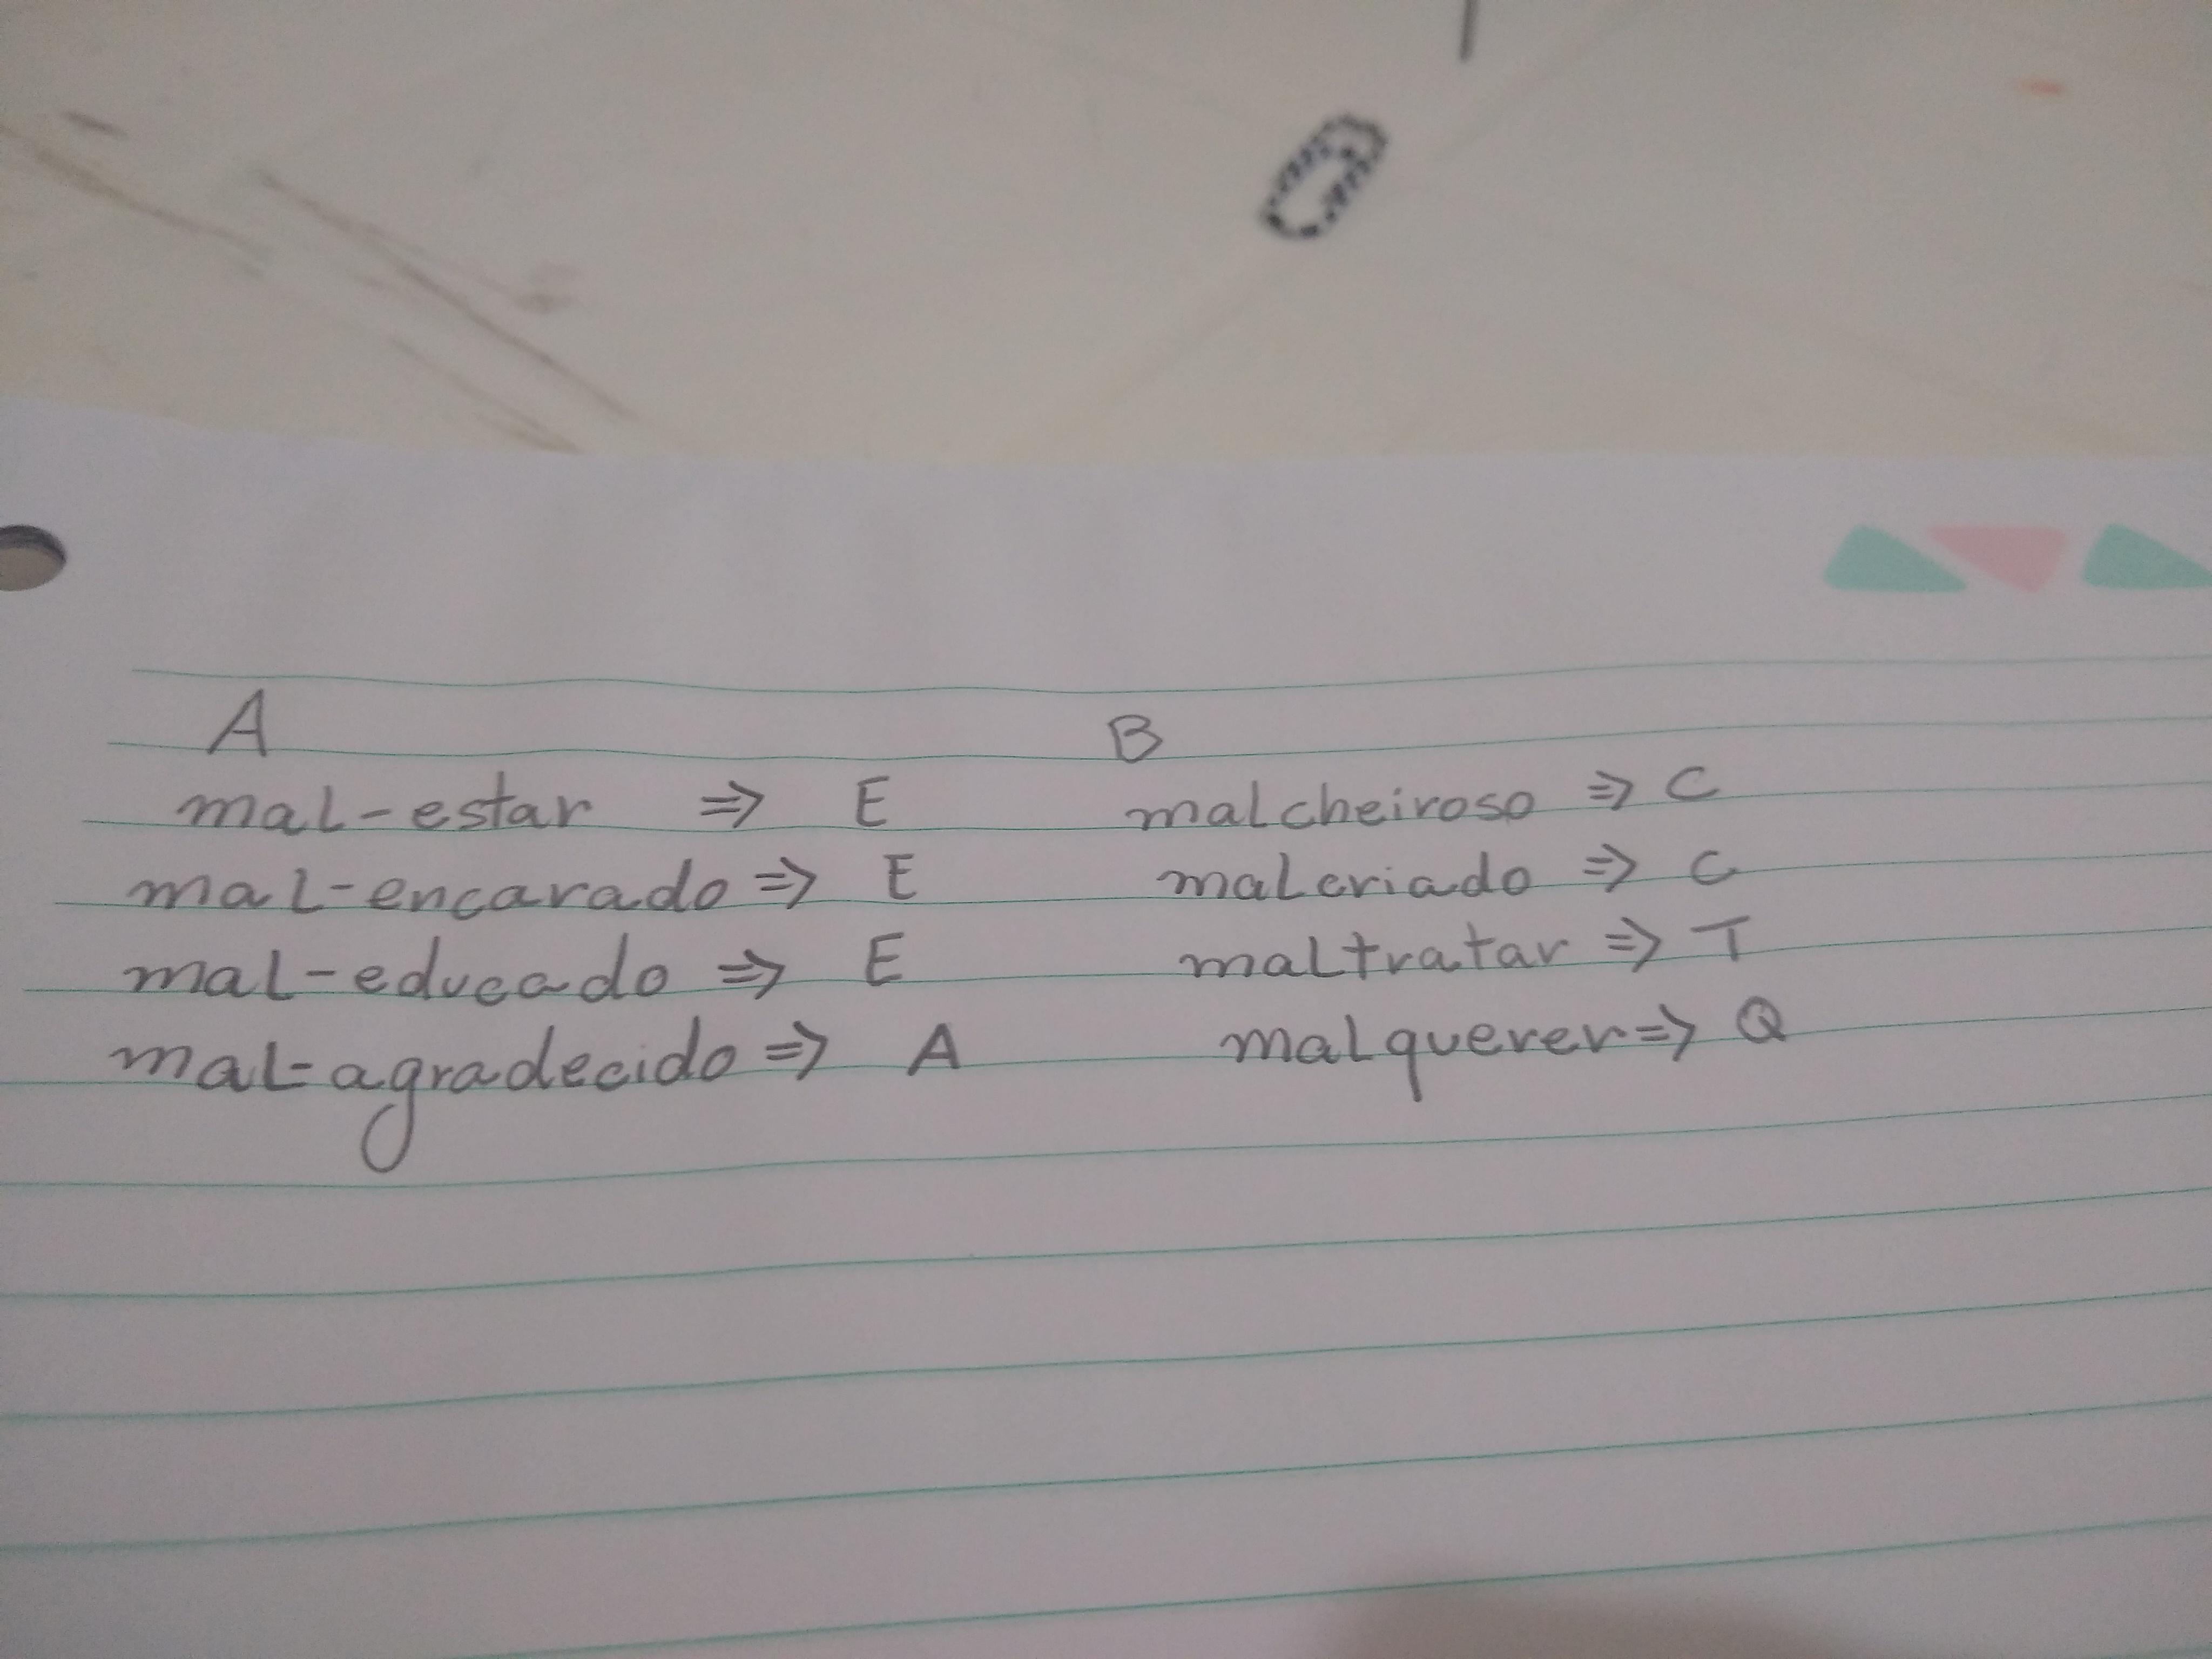 A B
mal-estar => E malcheiroso => C
mal-encarado => E malcriado => C
mal-educado => E maltratar => T
mal-agradecido => A malquerer => Q